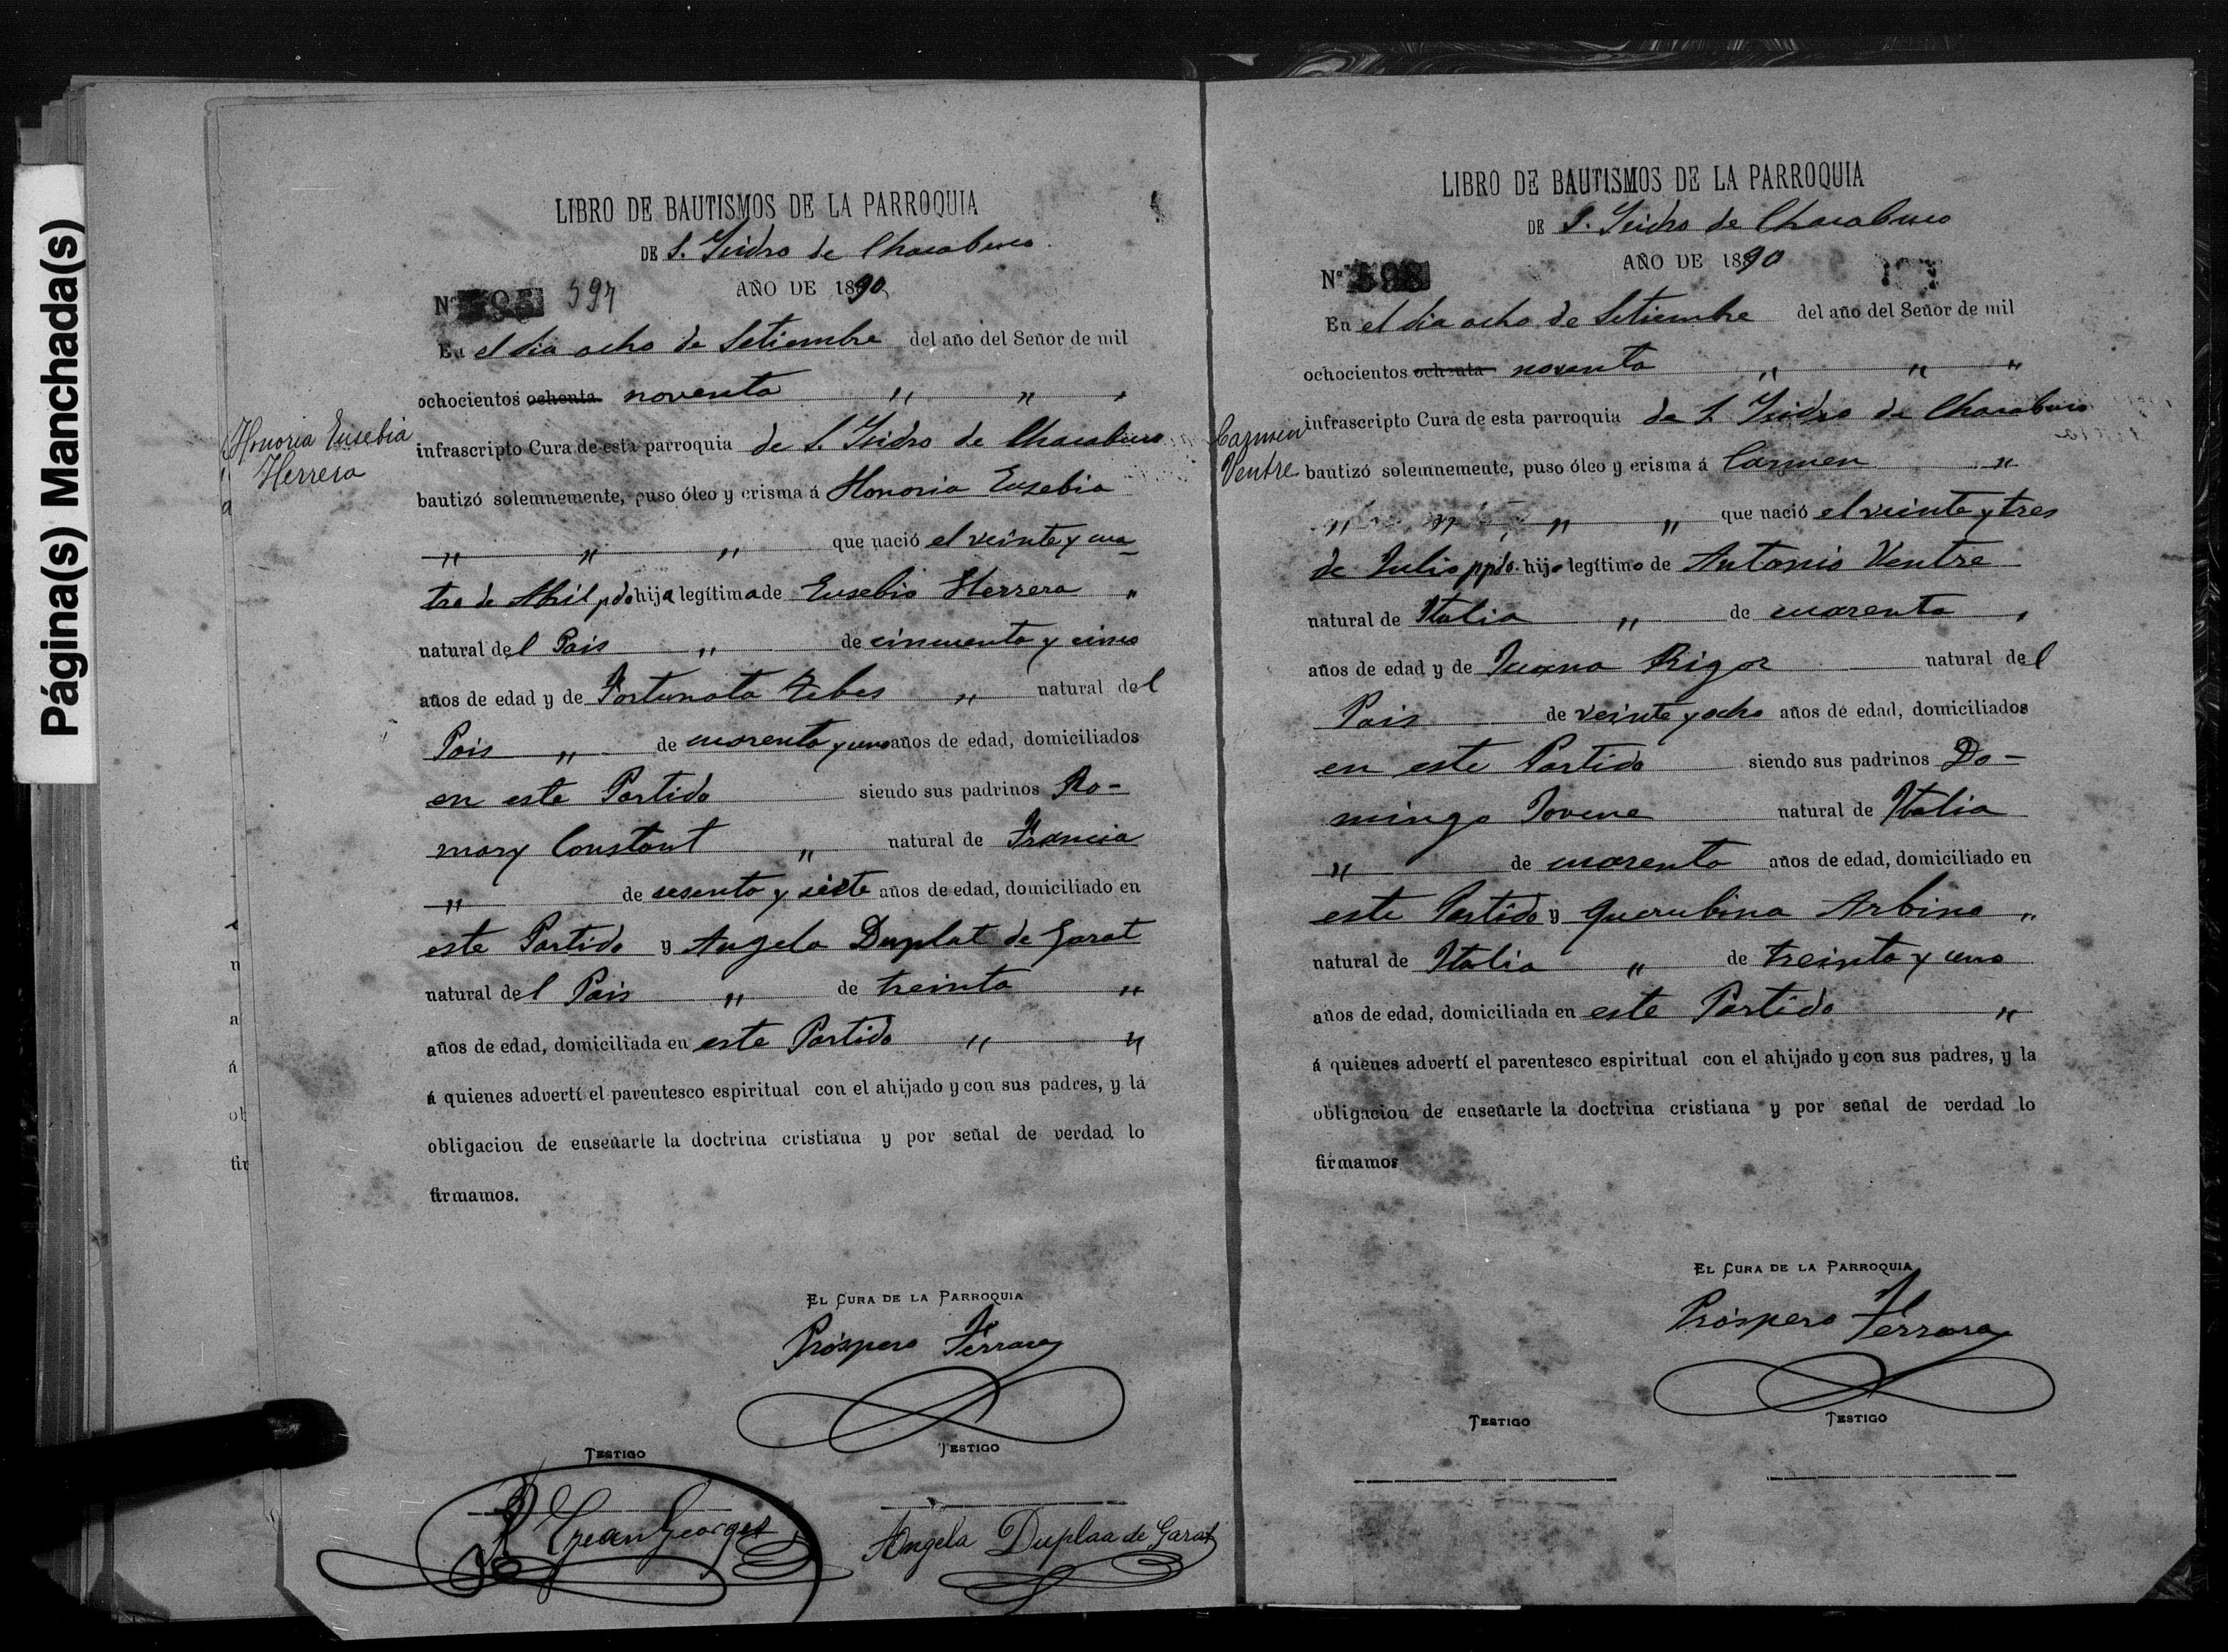 Página(s) Manchada(s)
LIBRO DE BAUTISMOS DE LA PARROQUIA
DE S. Isidro de Chacabuco
Nº 597 AÑO DE 1890
En el dia ocho de Setiembre del año del Señor de mil
ochocientos ochenta noventa " " "
Honoria Eusebia
Herrera
infrascripto Cura de esta parroquia de S. Isidro de Chacabuco
bautizó solemnemente, puso óleo y crisma á Honoria Eusebia
" " " que nació el veinte y cua
tro de Abril pdo hija legítima de Eusebio Herrera "
natural del Pais " de cincuenta y cinco
años de edad y de Fortunata " natural del
Pais " de cuarenta y uno años de edad, domiciliados
en este Partido siendo sus padrinos Ro-
mary Constant " natural de Francia
" de sesenta y siete años de edad, domiciliado en
este Partido y Angela Duplat de Garat
natural del Pais " de treinta "
años de edad, domiciliada en este Partido " "
á quienes advertí el parentesco espiritual con el ahijado y con sus padres, y la
obligacion de enseñarle la doctrina cristiana y por señal de verdad lo
firmamos.
EL CURA DE LA PARROQUIA
Próspero Ferrara
TESTIGO TESTIGO
Angela Duplaa de Garat
LIBRO DE BAUTISMOS DE LA PARROQUIA
DE S. Isidro de Chacabuco
AÑO DE 1890
Nº 598
En el dia ocho de Setiembre del año del Señor de mil
ochocientos ochenta noventa " " "
Carmen
Ventre
infrascripto Cura de esta parroquia de S. Isidro de Chacabuco
bautizó solemnemente, puso óleo y crisma á Carmen "
" " " " que nació el veinte y tres
de Julio ppdo. hijo legítimo de Antonio Ventre
natural de Italia " de cuarenta "
años de edad y de Juana Rigor natural del
Pais de veinte y ocho años de edad, domiciliados
en este Partido siendo sus padrinos Do-
mingo Iovene natural de Italia
" de cuarenta años de edad, domiciliado en
este Partido y Querubina Arbino "
natural de Italia " de treinta y uno
años de edad, domiciliada en este Partido "
á quienes advertí el parentesco espiritual con el ahijado y con sus padres, y la
obligacion de enseñarle la doctrina cristiana y por señal de verdad lo
firmamos
EL CURA DE LA PARROQUIA
Próspero Ferrara
TESTIGO TESTIGO